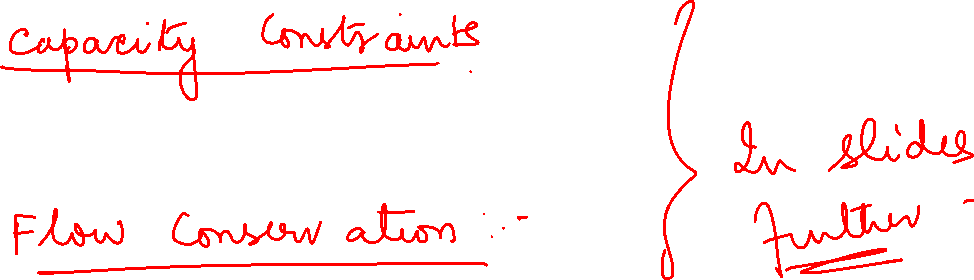 Capacity Constraints
Flow Conservation :-
In slides
further -